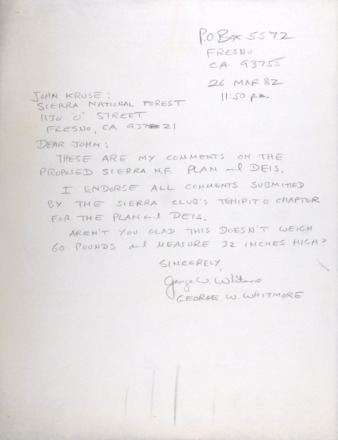 P.O. BOX 5572
FRESNO
CA 93755
26 MAR 82
11:50 p.m.
JOHN KRUSE:
SIERRA NATIONAL FOREST
1130 "O" STREET
FRESNO, CA 93721
DEAR JOHN:
THESE ARE MY COMMENTS ON THE
PROPOSED SIERRA N.F. PLAN and DEIS.
I ENDORSE ALL COMMENTS SUBMITTED
BY THE SIERRA CLUB'S TEHIPITE CHAPTER
FOR THE PLAN and DEIS.
AREN'T YOU GLAD THIS DOESN'T WEIGH
60 POUNDS and MEASURE 32 INCHES HIGH?
SINCERELY,
George W. Whitmore
GEORGE W. WHITMORE